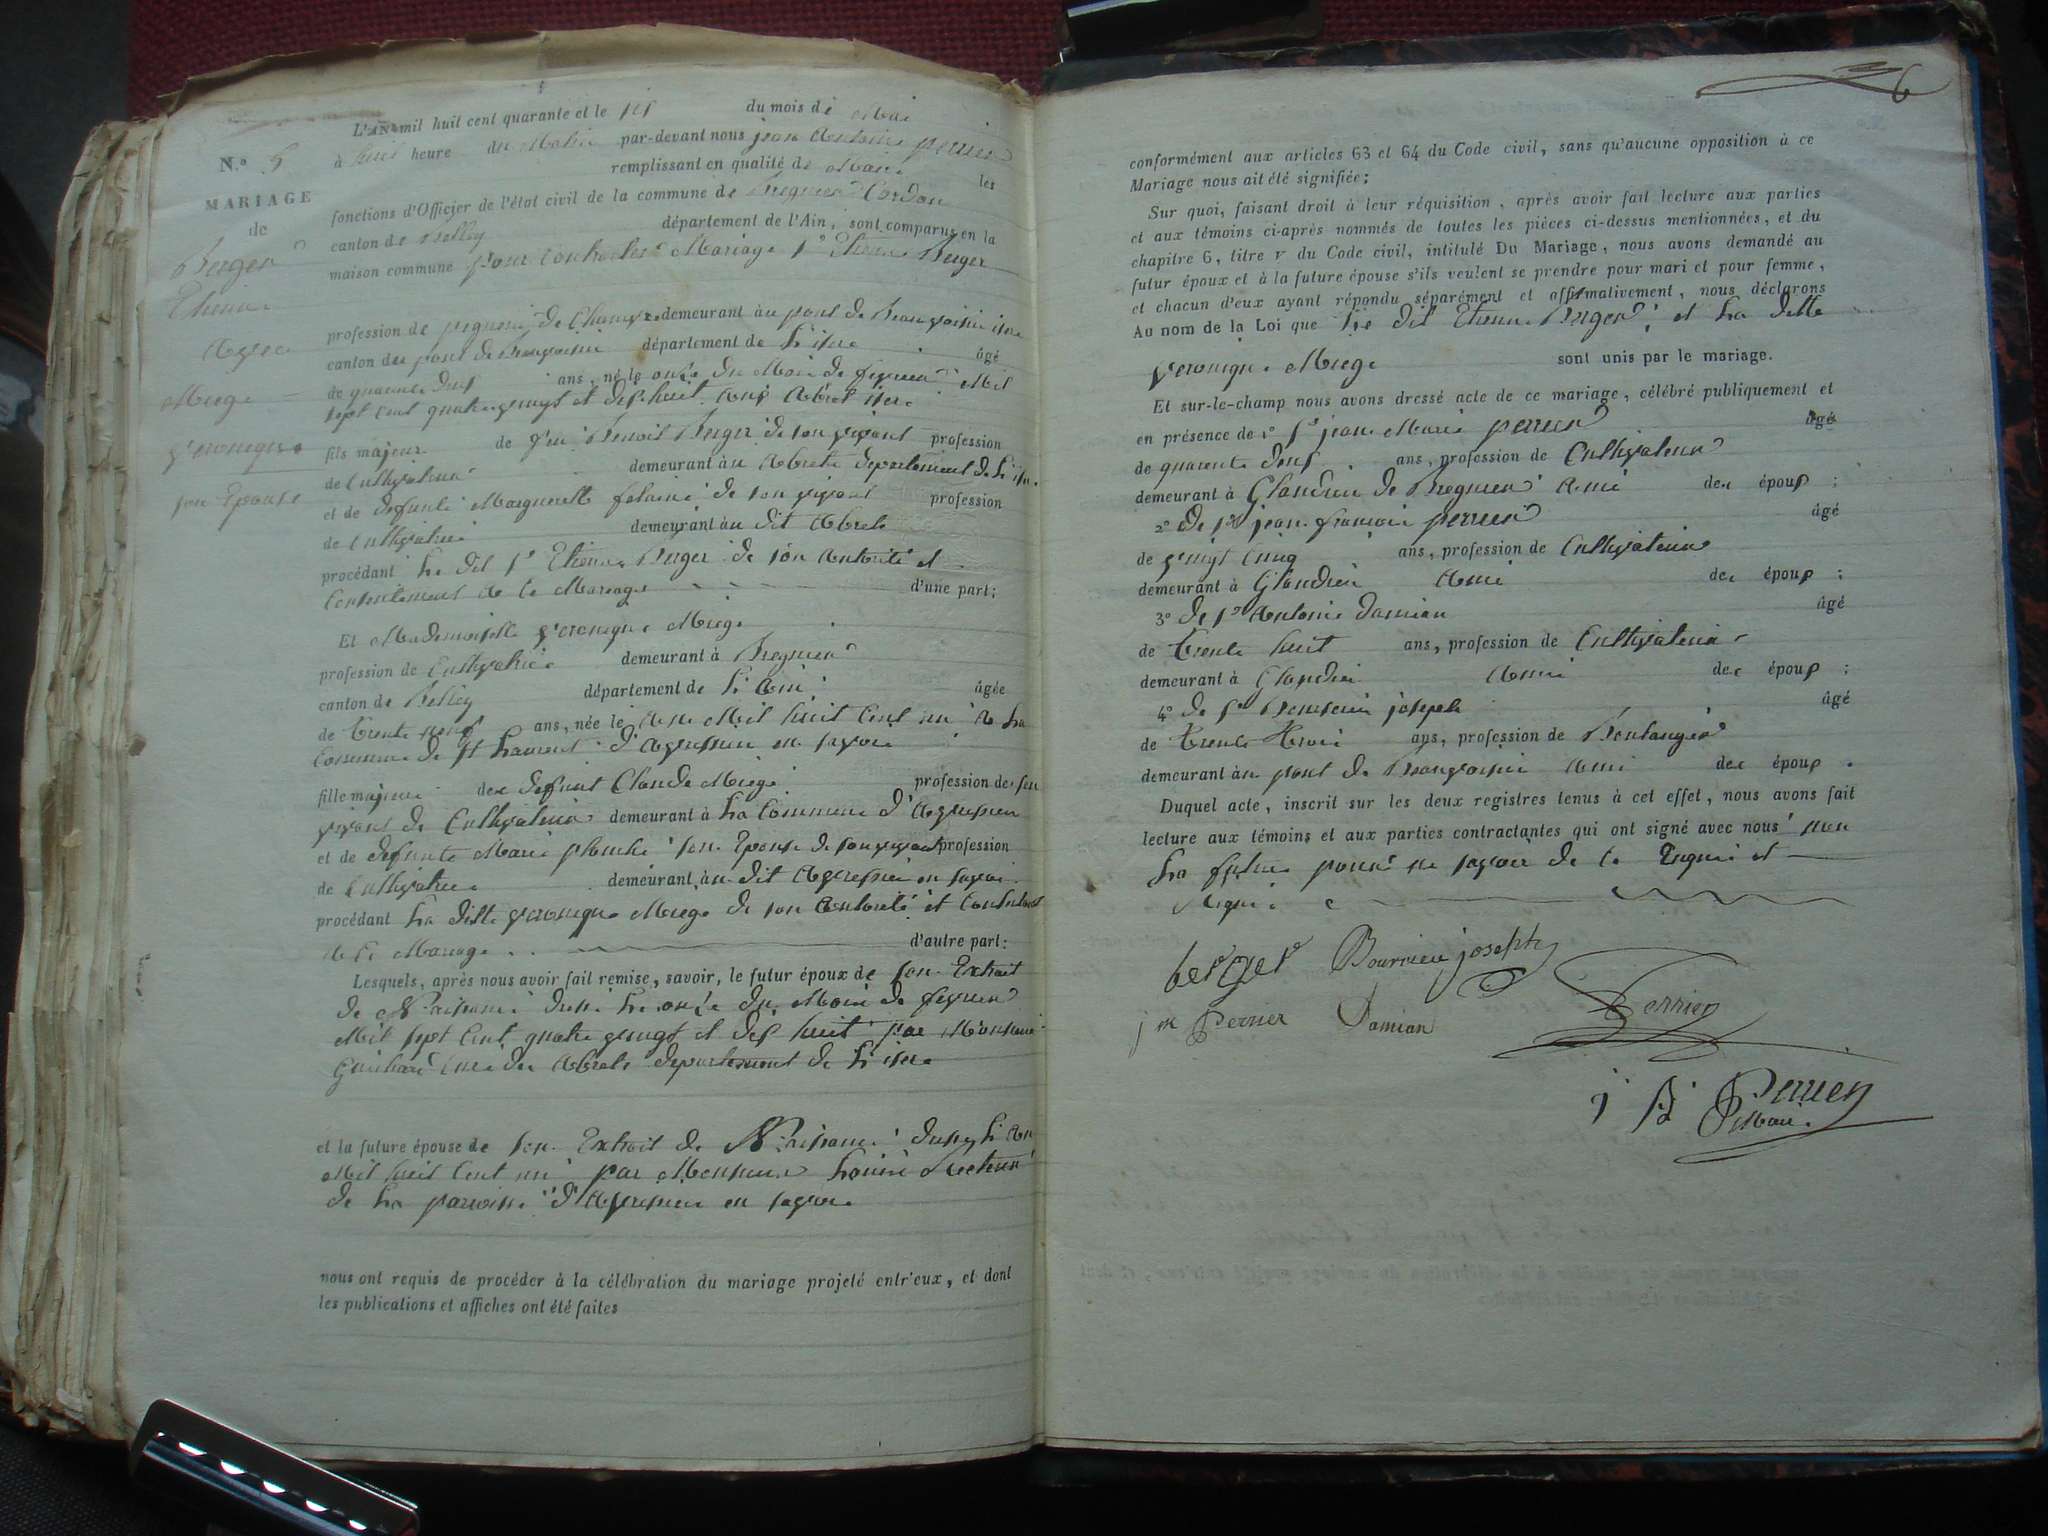 L'AN mil huit cent quarante et le six du mois de Mai
N.° 5
à huit heure du Matin par-devant nous jean Antoine perrier
remplissant en qualité de Maire les
MARIAGE
de
fonctions d'Officier de l'état civil de la commune de Bregnier Cordon
canton de Belley département de l'Ain, sont comparus en la
maison commune pour Contracter Mariage Sr Etienne Berger
Berger
Etienne
Avec
Miege
veronique
son Epouse
profession de de Chanvre demeurant au pont de Beauvoisin isere
canton du pont de Beauvoisin département de L'isere âgé
de quarante deux ans, né le onze du Mois de fevrier Mil
sept cent quatre vingt et dix huit aux Abret isere
fils majeur de feu Benoit Berger de son vivant profession
de Cultivateur demeurant au Abrets departement de L'isere
et de defunte Marguerite de son vivant profession
de Cultivatrice demeurant au dit Abrets
procédant Le dit Sr Etienne Berger de son Autorité et
Consentement de Ce Mariage d'une part;
Et Mademoiselle veronique Miege
profession de Cultivatrice demeurant à Bregnier
canton de Belley département de L'Ain âgée
de Trente neuf ans, née le Année Mil huit Cent un à La
Commune de St Laurent d'Agressieu en savoie
fille majeure de defunt Claude Miege profession de son
vivant de Cultivateur demeurant à La Commune d'Avressieu
et de defunte Marie planche son Epouse de son vivant profession
de Cultivatrice demeurant au dit Avressieu en savoie
procédant La ditte veronique Miege de son Autorité et Consentement
de Ce Mariage d'autre part:
Lesquels, après nous avoir fait remise, savoir, le futur époux de son Extrait
de Naissance du Le onze du Mois de fevrier
Mil sept Cent quatre vingt et dix huit par Monsieur
Curé des Abrets departement de L'isere
et la future épouse de son Extrait de Naissance L'an
Mil huit Cent un par Monsieur Recteur
de La paroisse d'Avressieu en savoie
nous ont requis de procéder à la célébration du mariage projeté entr'eux, et dont
les publications et affiches ont été faites
6
conformément aux articles 63 et 64 du Code civil, sans qu'aucune opposition à ce
Mariage nous ait été signifiée;
Sur quoi, faisant droit à leur réquisition, après avoir fait lecture aux parties
et aux témoins ci-après nommés de toutes les pièces ci-dessus mentionnées, et du
chapitre 6, titre v du Code civil, intitulé Du Mariage, nous avons demandé au
futur époux et à la future épouse s'ils veulent se prendre pour mari et pour femme,
et chacun d'eux ayant répondu séparément et affirmativement, nous déclarons
Au nom de la Loi que Le dit Etienne Berger, et La ditte
veronique Miege sont unis par le mariage.
Et sur-le-champ nous avons dressé acte de ce mariage, célébré publiquement et
en présence de 1° Sr jean Marie perrier âgé
de quarante deux ans, profession de Cultivateur
demeurant à Glandieu de Bregnier Ami des époux;
2° de Sr jean francois perrier âgé
de vingt Cinq ans, profession de Cultivateur
demeurant à Glandieu Ami des époux;
3° de Sr Antoine damian âgé
de Trente huit ans, profession de Cultivateur
demeurant à Glandieu Ami des époux;
4° de Sr joseph âgé
de Trente Trois ans, profession de Boulanger
demeurant au pont de Beauvoisin Ami des époux.
Duquel acte, inscrit sur les deux registres tenus à cet effet, nous avons fait
lecture aux témoins et aux parties contractantes qui ont signé avec nous non
La future pour ne savoir de Ce Enquis et
Requis
berger Bourrieu joseph
j m Perrier Damian Perrier
j A Perrier
Maire